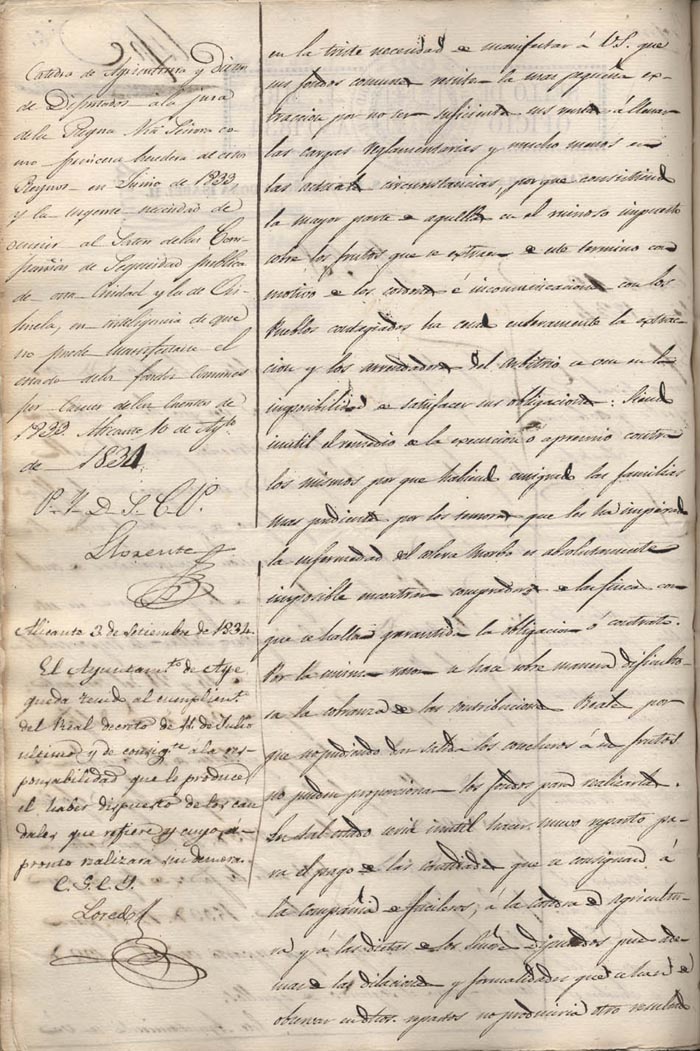 Catedra de Agricultura y Dietas
de Diputados à la jura
de la Reyna Ntra Señora co-
mo princesa heredera de estos
Reynos en Junio de 1833
y la urgente necesidad de
al de las Com-
pañias de Seguridad publica
de esta Ciudad y la de Ori-
huela, en inteligencia de que
no puede manifestarse el
estado de los fondos comunes
por carecer de las cuentas de
1833. Alicante 10 de Agto
de 1834.
P. Y. D. S. C. P.
Llorente
Alicante 2 de Setiembre de 1834.
El Ayuntamto de Aspe
queda al cumplimto
del Real decreto de 11 de Julio
ultimo y de consigte a la res-
ponsabilidad que le produce
el haber dispuesto de los cau
dales que refiere y cuyo a-
pronto realizara sin demora.
Loredo
en la triste necesidad de manifestar á V.S. que
sus fondos comunes resisten la mas pequeña ex-
traccion por no ser suficientes sus rentas á llenar
las cargas reglamentarias y mucho menos en
las actuales circunstancias, porque consistiendo
la mayor parte de aquellas en el ruinoso impuesto
sobre los frutos que se extraen de este termino con
motivo de los cordones é incomunicaciones con los
Pueblos contagiados ha cesado enteramente la extrac-
cion y los arrendadores del arbitrio se ven en la
imposibilidad de satisfacer sus obligaciones: Siendo
inutil el remedio de la execucion o apremio contra
los mismos por que habiendo emigrado las familias
mas pudientes por los temores que les ha inspirado
la enfermedad del colera Morbo es absolutamente
imposible encontrar compradores de las fincas con
que se halla garantida la obligacion ó contrato.
Por la misma razon se hace sobre manera dificulto-
sa la cobranza de las contribuciones Reales por-
que no pudiendo dar salida los cosecheros á sus frutos
no pueden proporcionar los fondos para realizarla.
En tal estado seria inutil hacer nuevo reparto pa-
ra el pago de las cantidades que se consignan á
la compañia de fucileros, á la catedra de agricultu-
ra y á las dietas de los Diputados pues ade-
mas de las dilaciones y formalidades que se hacen de
observar en dichos repartos no produciria otro resultado